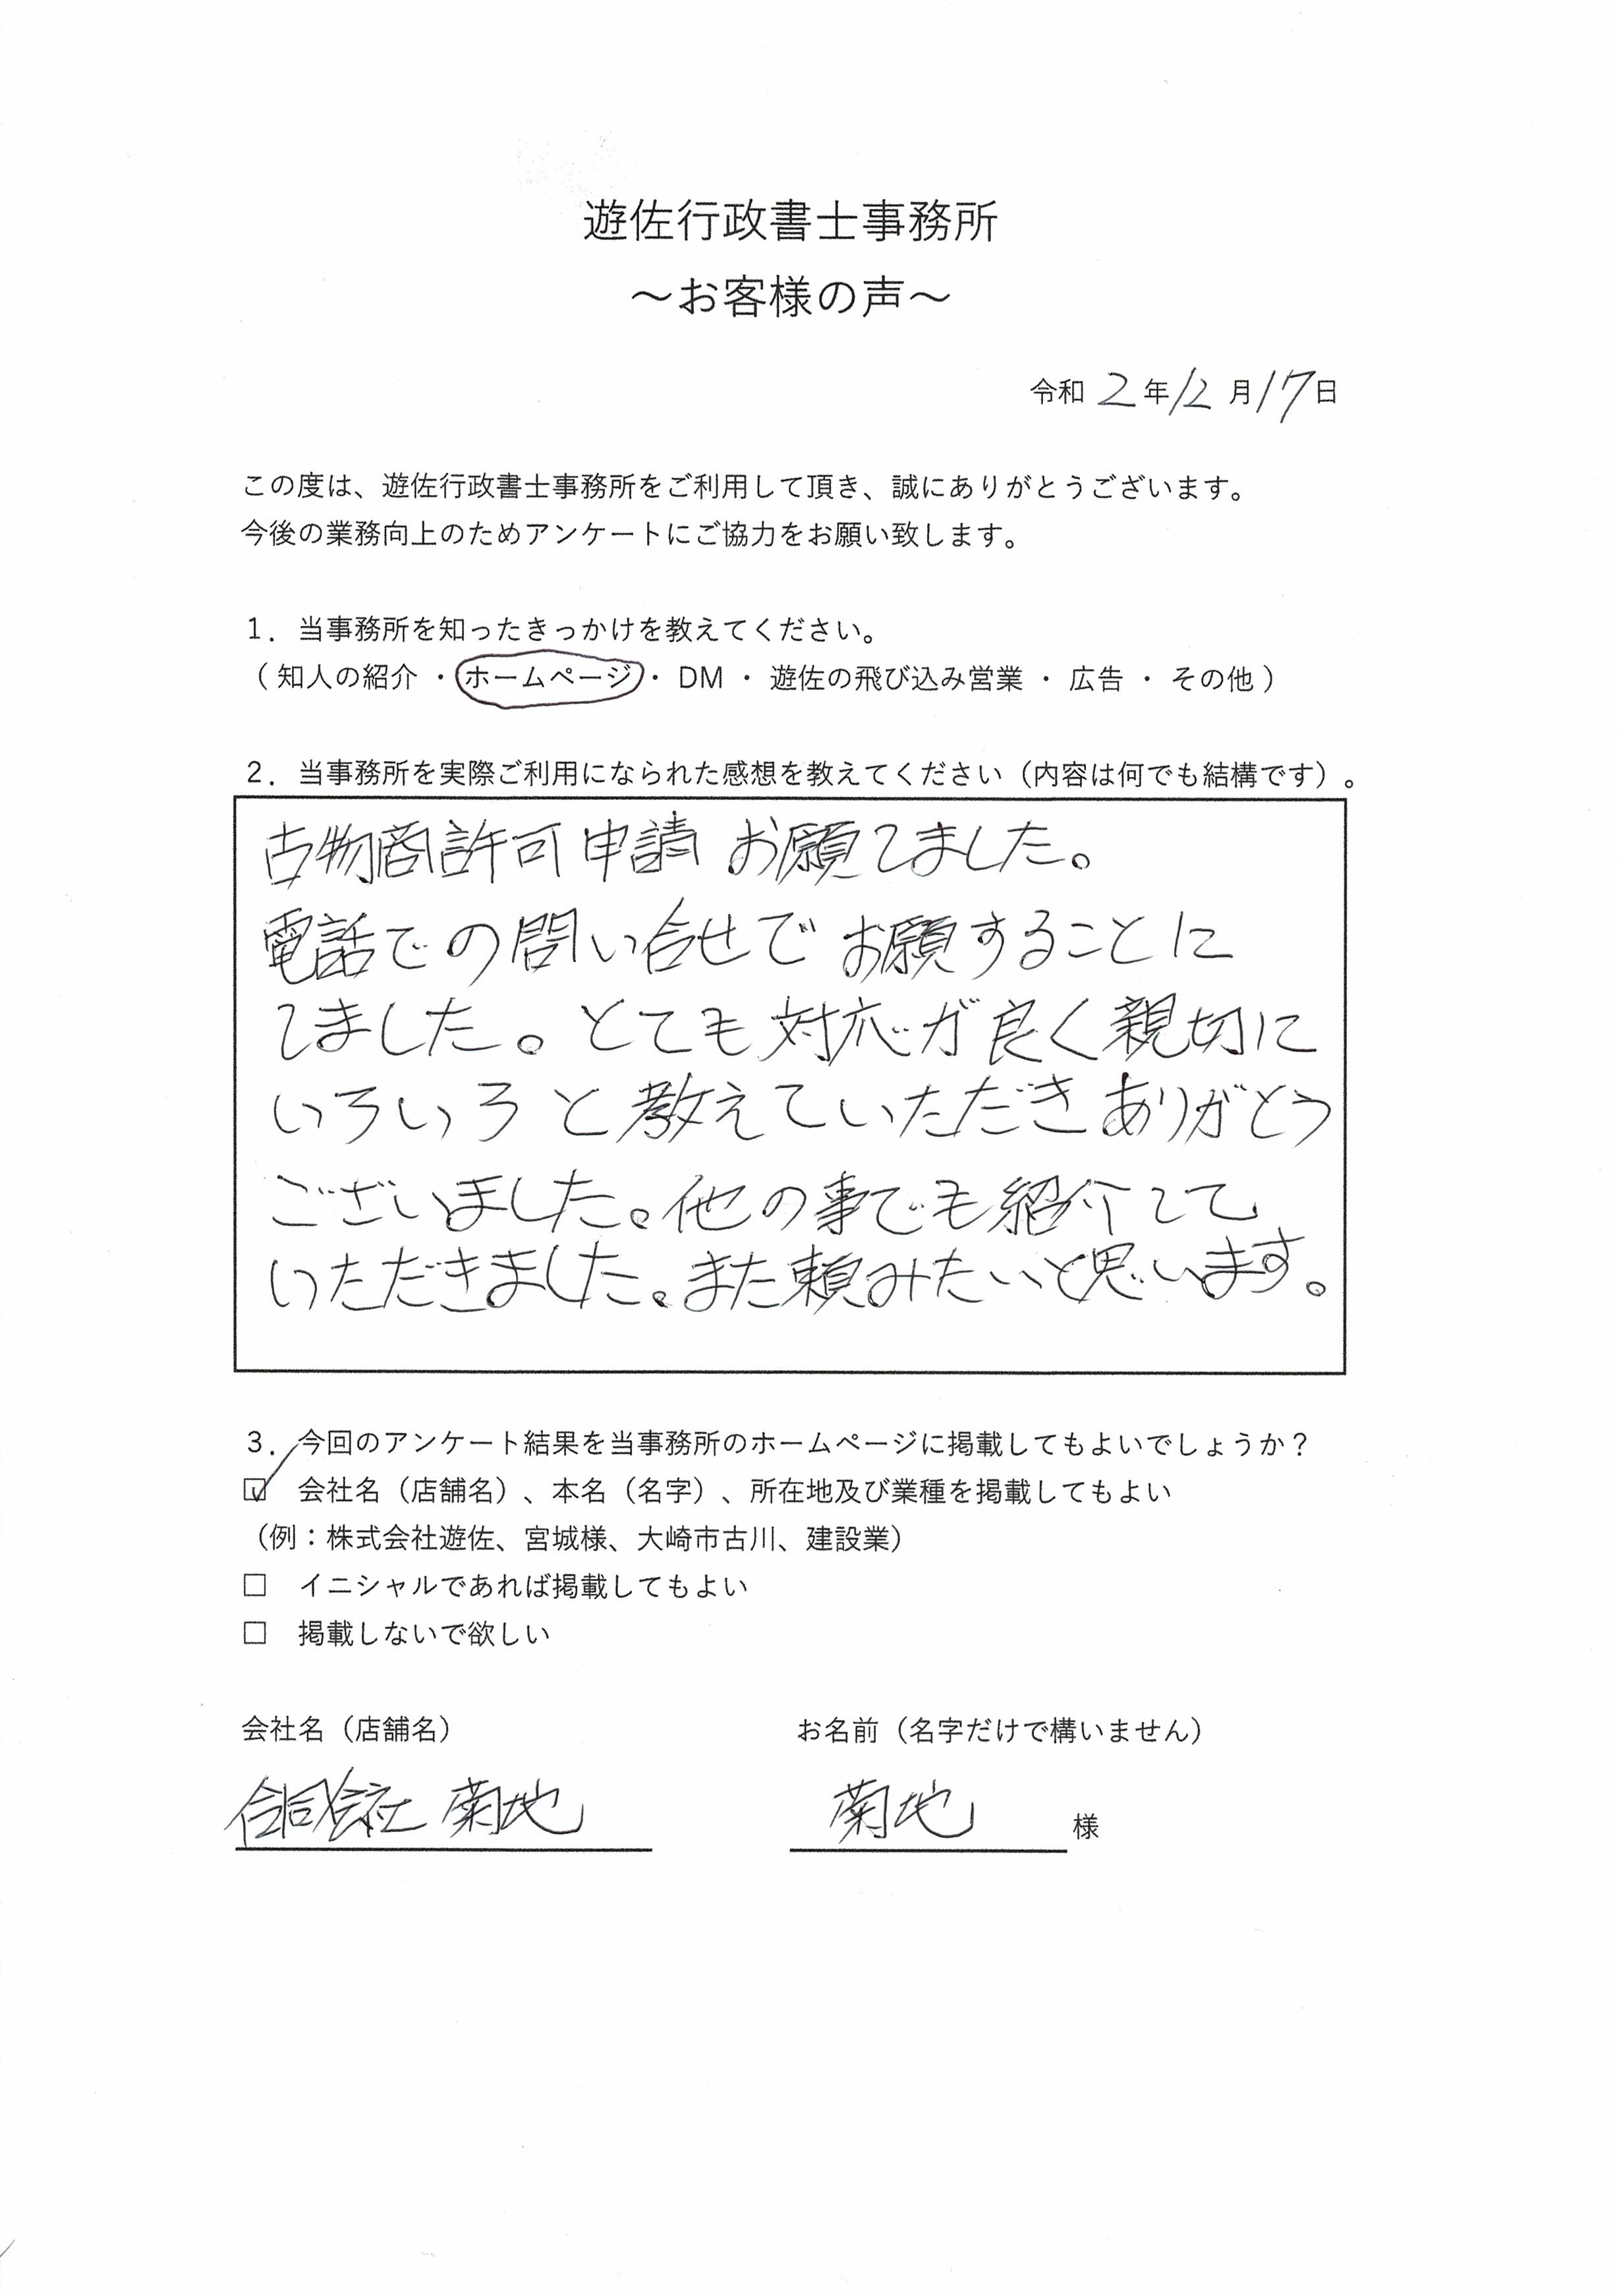 遊佐行政書士事務所
～お客様の声～
令和 2 年 12 月 17 日
この度は、遊佐行政書士事務所をご利用して頂き、誠にありがとうございます。
今後の業務向上のためアンケートにご協力をお願い致します。
1．当事務所を知ったきっかけを教えてください。
（ 知人の紹介 ・ ホームページ ・ DM ・ 遊佐の飛び込み営業 ・ 広告 ・ その他 ）
2．当事務所を実際ご利用になられた感想を教えてください（内容は何でも結構です）。
古物商許可申請 お願しました。
電話での問い合せで お願することに
しました。とても対応が良く親切に
いろいろと教えていただきありがとう
ございました。他の事でも紹介して
いただきました。また頼みたいと思います。
3．今回のアンケート結果を当事務所のホームページに掲載してもよいでしょうか？
☑ 会社名（店舗名）、本名（名字）、所在地及び業種を掲載してもよい
（例：株式会社遊佐、宮城様、大崎市古川、建設業）
□ イニシャルであれば掲載してもよい
□ 掲載しないで欲しい
会社名（店舗名） お名前（名字だけで構いません）
合同会社 菊地 菊地 様